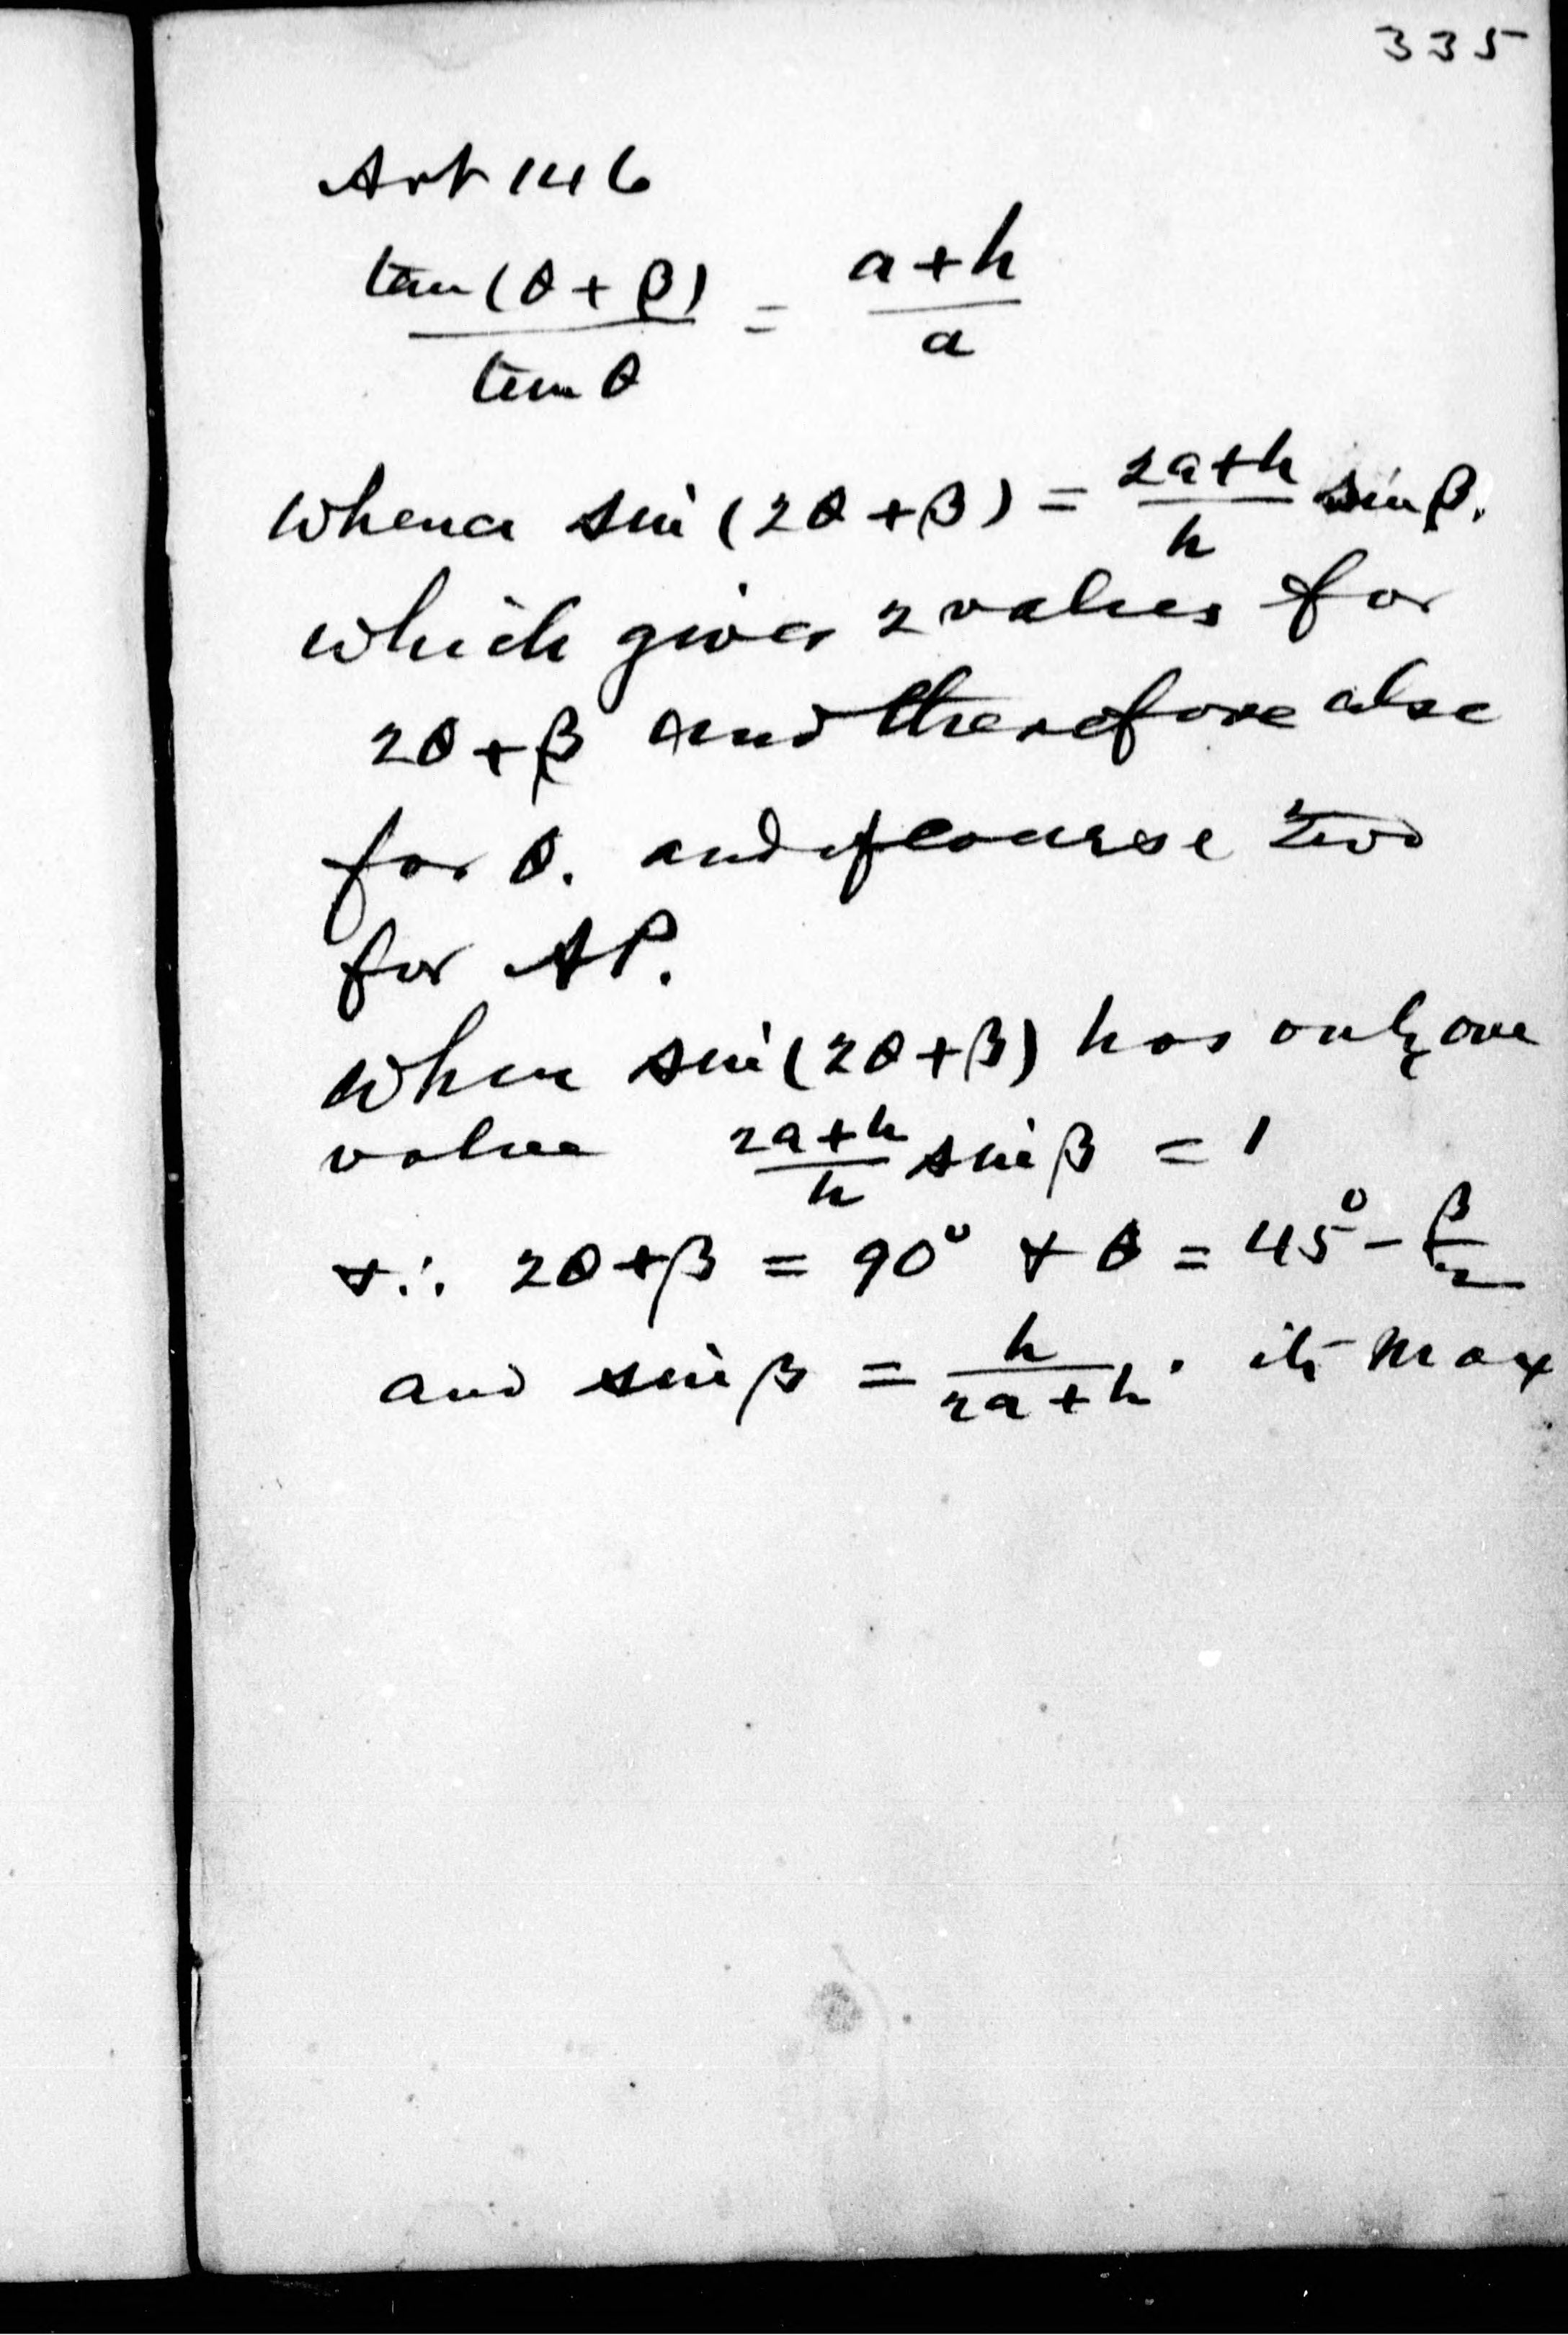 335
Art 146
tan(θ + β) / tan θ = a + h / a
Whence sin (2θ + β) = 2a+h / h sin β.
which gives 2 values for
2θ + β and therefore also
for θ. and of course two
for AP.
When sin (2θ + β) has only one
value 2a+h / h sin β = 1
& ∴ 2θ + β = 90° & θ = 45° - β/2
and sin β = h / 2a + h . its max